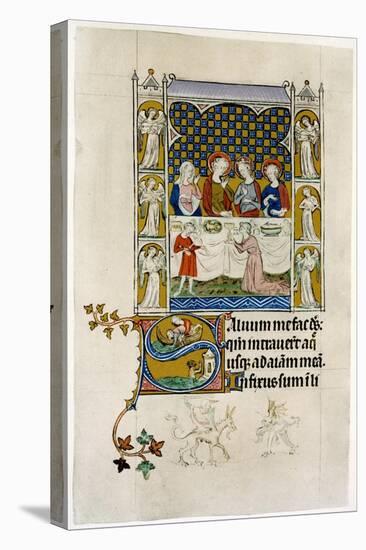 Saluum me fac ds:
qm intrauert aq̄
usq; ad aīam meā.
Infixus sum ī li